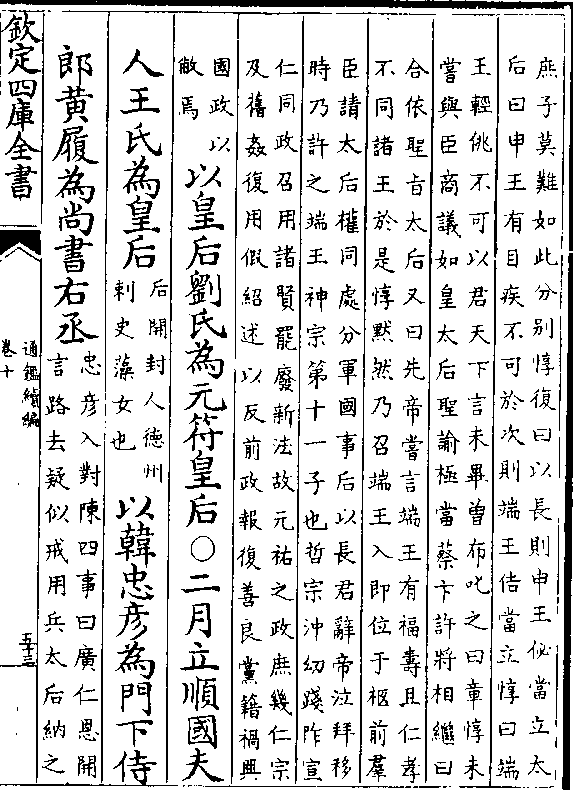 庶子莫難如此分别惇復曰以長則申王佖當立太
后曰申王有目疾不可於次則端王佶當立惇曰端
王輕佻不可以君天下言未畢曽布叱之曰章惇未
嘗與臣商議如皇太后聖諭極當蔡卞許將相繼曰
合依聖旨太后又曰先帝嘗言端王有福壽且仁孝
不同諸王於是惇黙然乃召端王入即位于柩前羣
臣請太后權同處分軍國事后以長君辭帝泣拜移
時乃許之端王神宗第十一子也哲宗沖幼踐阼宣
仁同政召用諸賢罷廢新法故元祐之政庶幾仁宗
及舊姦復用假紹述以反前政報復善良黨籍禍興
國政以
敝焉
以皇后劉氏為元符皇后○二月立順國夫
人王氏為皇后
后開封人德州
刺史藻女也
以韓忠彦為門下侍
郎黄履為尚書右丞
忠彦入對陳四事曰廣仁恩開
言路去疑似戒用兵太后納之
欽定四庫全書
通鑑續編
卷十
五十三